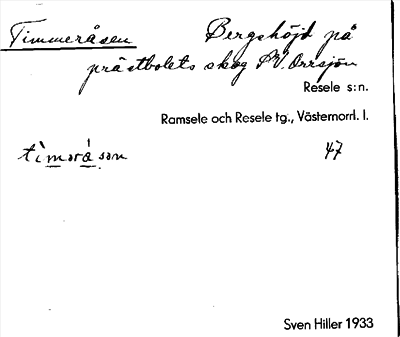 Timmeråsen Bergshöjd på
prästbolets skog SV. Orrsjön
Resele s:n.
Ramsele och Resele tg., Västernorrl. l.
47
Sven Hiller 1933